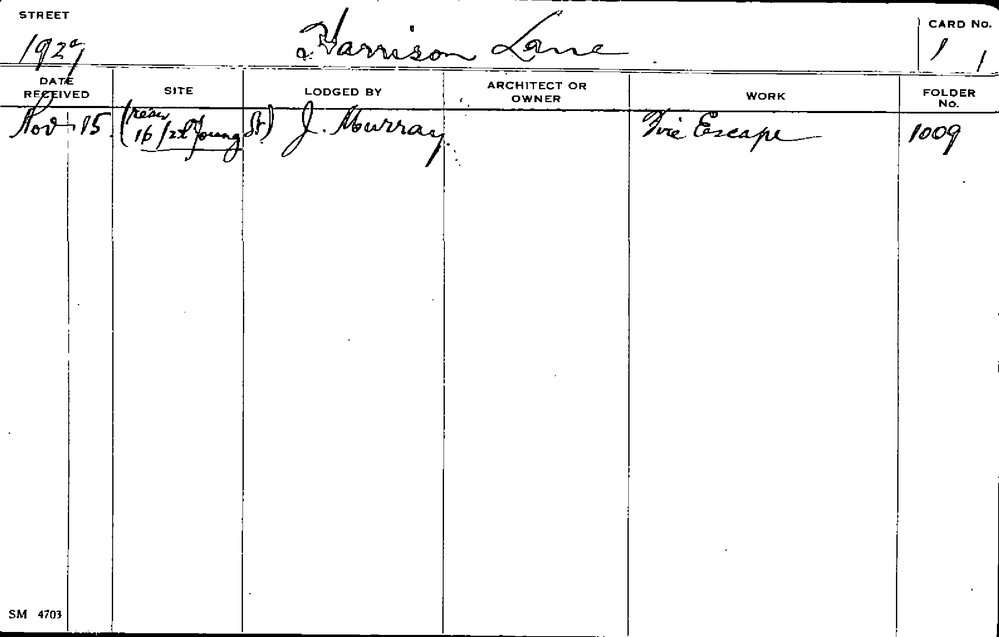 STREET
Harrison Lane
CARD No.
1929
1 1
DATE RECEIVED
SITE
LODGED BY
ARCHITECT OR OWNER
WORK
FOLDER No.
Nov 15 (rear
16/22 Young St) J. Murray Fire Escape 1009
SM 4703